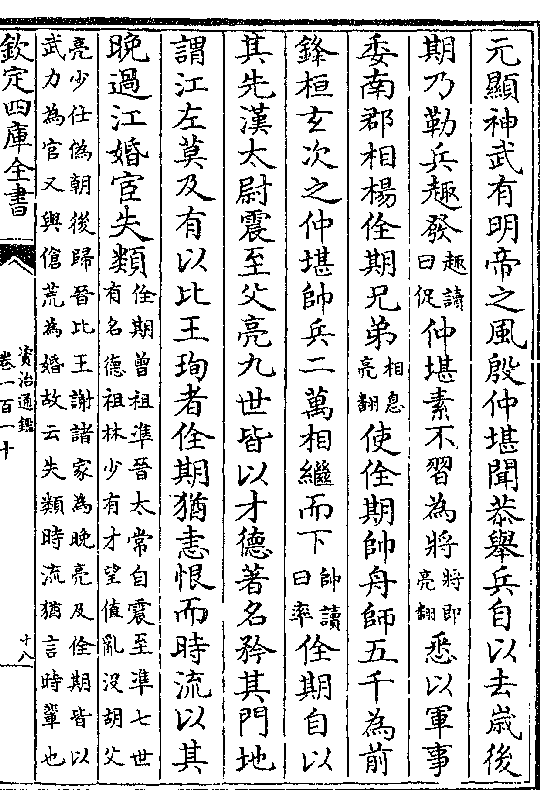 元顯神武有明帝之風殷仲堪聞恭舉兵自以去歲後
期乃勒兵趣發趣讀曰促仲堪素不習為將將即亮翻悉以軍事
委南郡相楊佺期兄弟相息亮翻使佺期帥舟師五千為前
鋒桓玄次之仲堪帥兵二萬相繼而下帥讀曰率佺期自以
其先漢太尉震至父亮九世皆以才德著名矜其門地
謂江左莫及有以比王珣者佺期猶恚恨而時流以其
晚過江婚宦失類佺期曾祖準晉太常自震至準七世有名德祖林少有才望值亂沒胡父
亮少仕偽朝後歸晉比王謝諸家為晚亮及佺期皆以武力為官又與傖荒為婚故云失類時流猶言時輩也
欽定四庫全書
資治通鑑
卷一百一十
十八